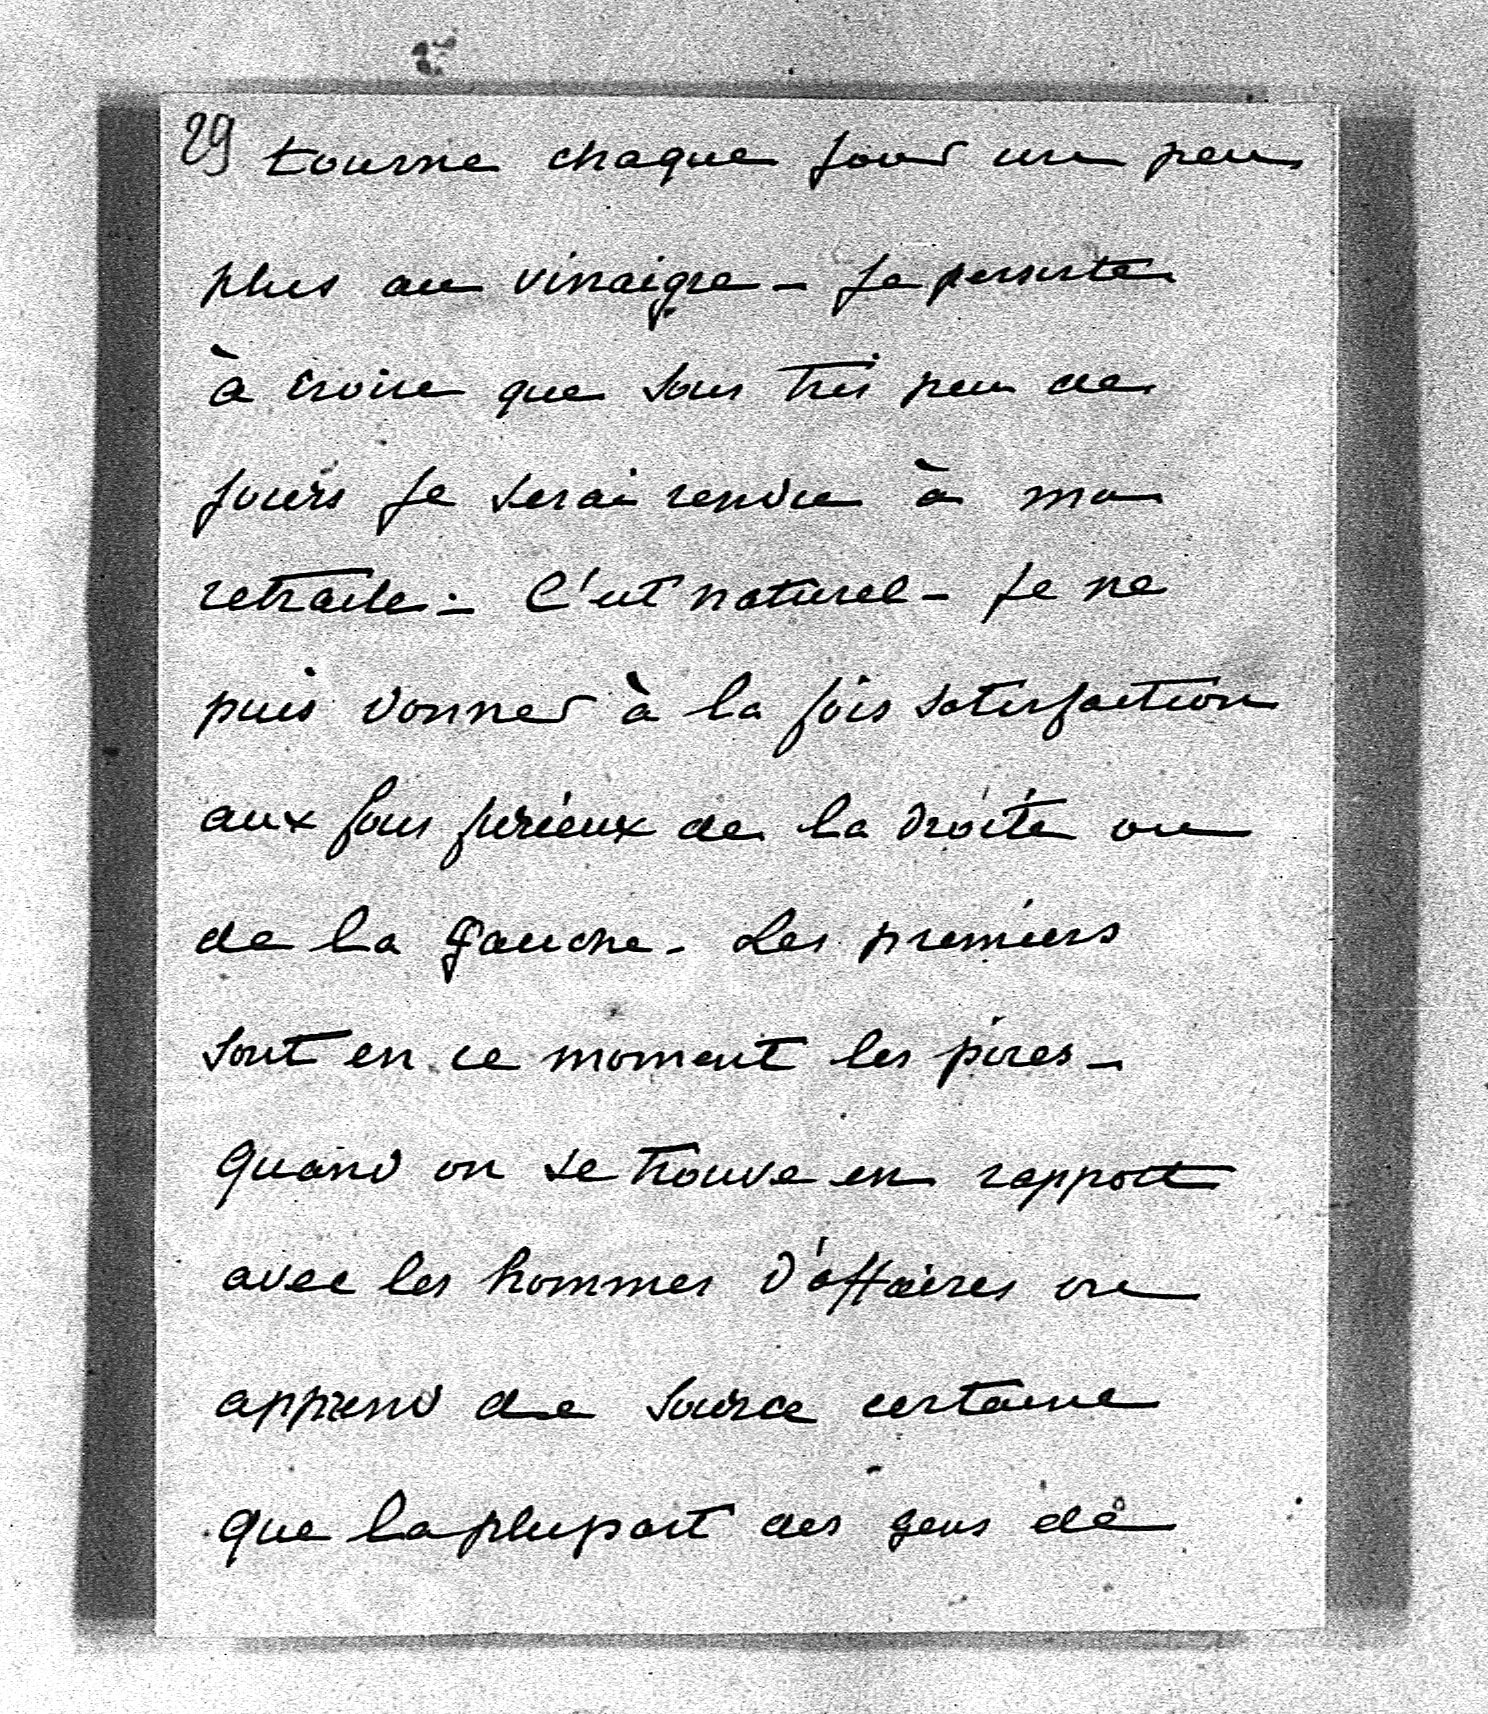 29 tourne chaque jour un peu
plus au vinaigre – Je persiste
à croire que sous très peu de
jours je serai rendu à ma
retraite. – C'est naturel – Je ne
puis donner à la fois satisfaction
aux fous furieux de la droite ou
de la gauche. Les premiers
sont en ce moment les pires –
Quand on se trouve en rapport
avec les hommes d'affaires on
apprend de source certaine
que la plupart des gens de